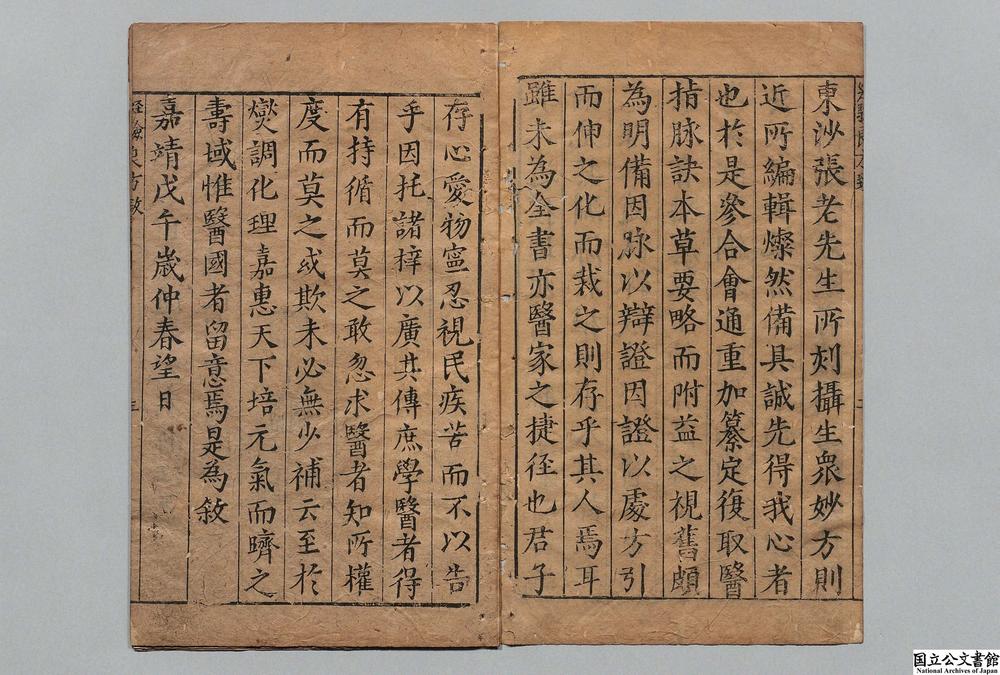 東沙張老先生所刻攝生衆妙方則
近所編輯燦然備具誠先得我心者
也於是參合會通重加纂定復取醫
指脉訣本草要略而附益之視舊頗
為明備因脉以辯證因證以處方引
而伸之化而裁之則存乎其人焉耳
雖未為全書亦醫家之捷徑也君子
存心愛物寧忍視民疾苦而不以告
乎因托諸梓以廣其傳庶學醫者得
有持循而莫之敢忽求醫者知所權
度而莫之或欺未必無少補云至於
燮調化理嘉惠天下培元氣而躋之
壽域惟醫國者留意焉是為敘
嘉靖戊午歲仲春望日
三
国立公文書館
National Archives of Japan